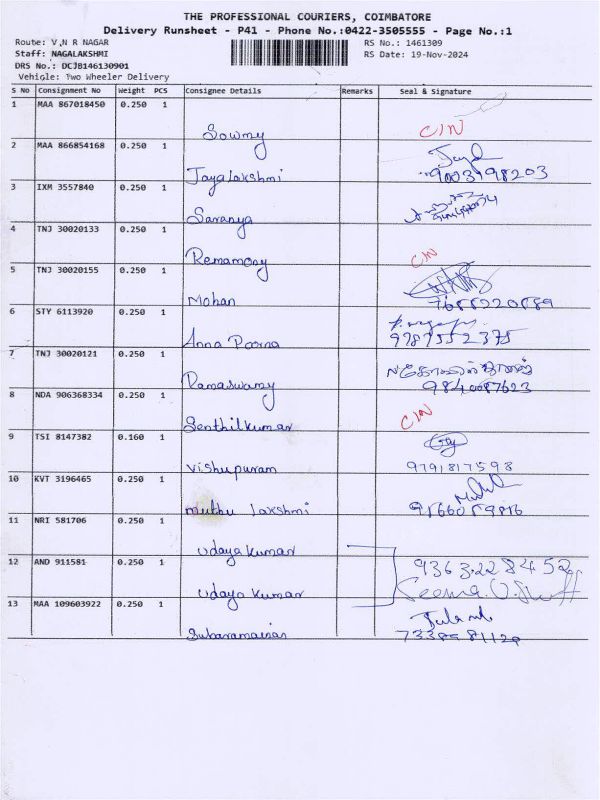 THE PROFESSIONAL COURIERS, COIMBATORE
Delivery Runsheet - P41 - Phone No.:0422-3505555 - Page No.:1
Route: V,N R NAGAR RS No.: 1461309
Staff: NAGALAKSHMI RS Date: 19-Nov-2024
DRS No.: DCJB146130901
Vehicle: Two Wheeler Delivery
S No Consignment No Weight PCS Consignee Details Remarks Seal & Signature
1 MAA 867018450 0.250 1
Sowmy C/N
2 MAA 866854168 0.250 1
Jayalakshmi 9003198203
3 IXM 3557840 0.250 1
Saranya
4 TNJ 30020133 0.250 1
Remamony C/N
5 TNJ 30020155 0.250 1
Mohan
6 STY 6113920 0.250 1
Anna Poorna 9787552375
7 TNJ 30020121 0.250 1
Ramaswamy 9840087623
8 NDA 906368334 0.250 1
Senthilkumar C/N
9 TSI 8147382 0.160 1
Vishupuram 9791817598
10 KVT 3196465 0.250 1
muthu lakshmi
11 NRI 581706 0.250 1
udaya kumar
12 AND 911581 0.250 1 9363228452
udaya kumar
13 MAA 109603922 0.250 1